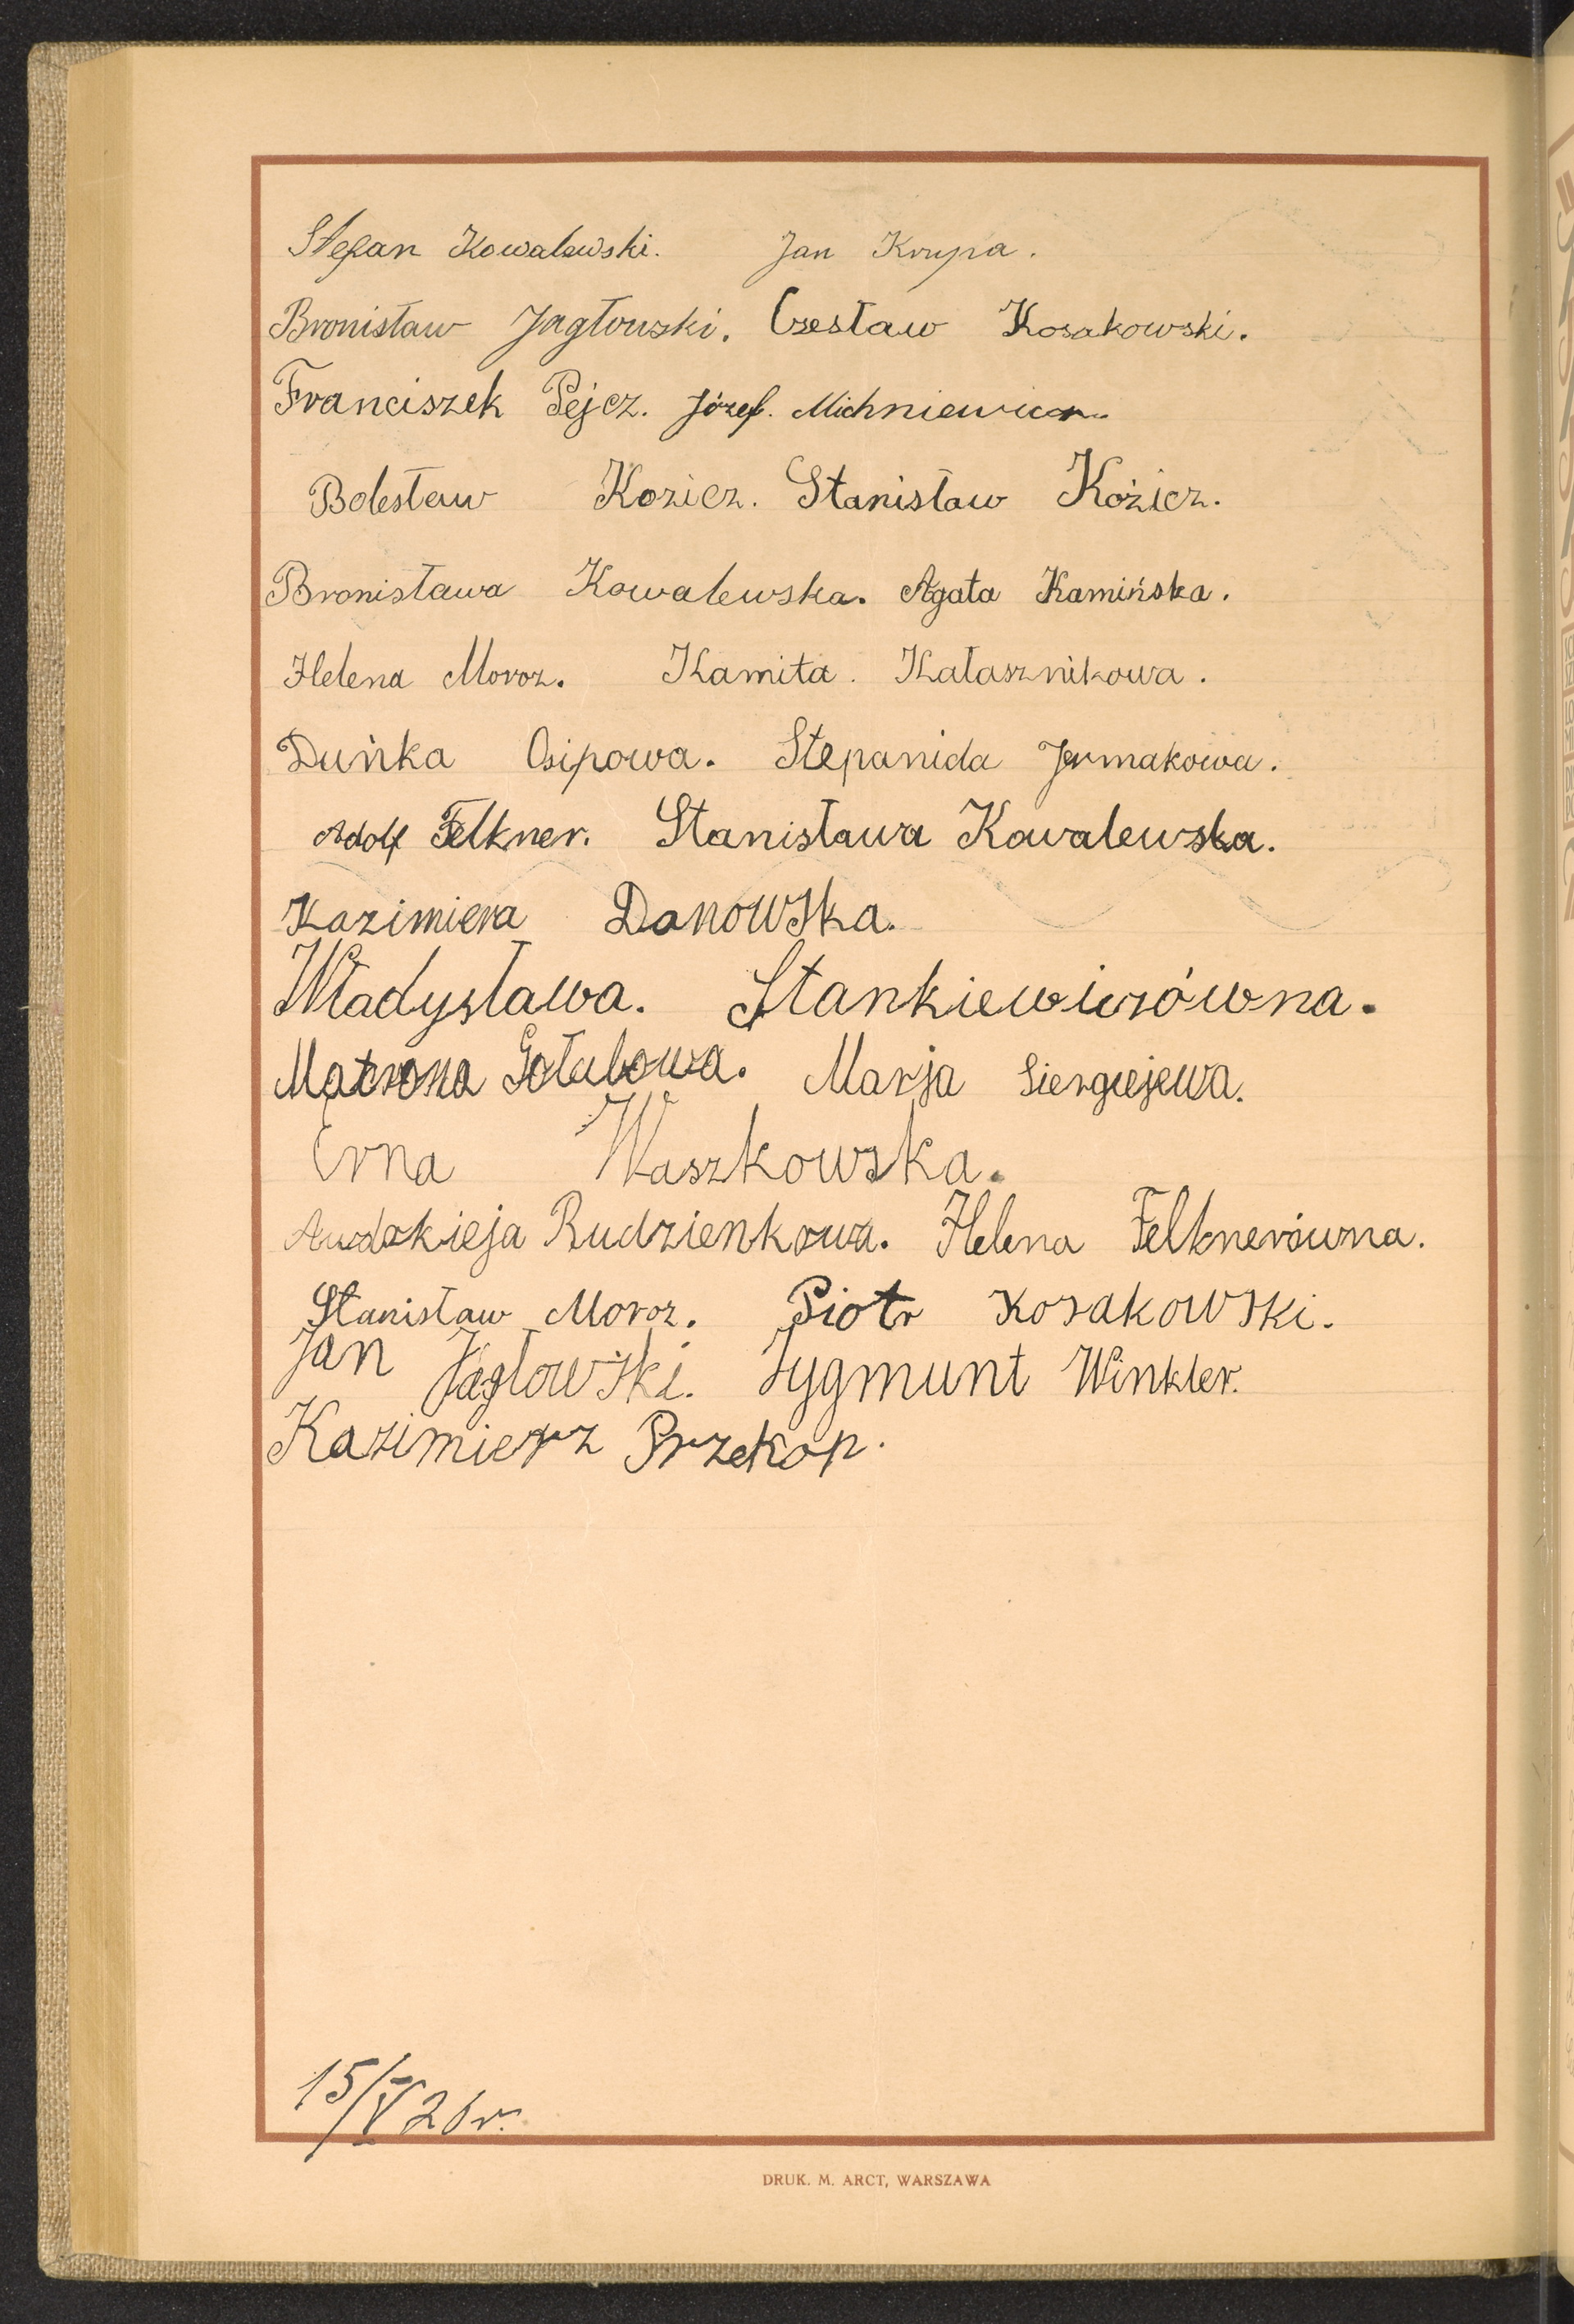 Stefan Kowalewski. Jan Krupa.
Bronisław Jagłowski. Czesław Kosakowski.
Franciszek Pejcz. Józef. Michniewicz.
Bolesław Kozicz. Stanisław Kozicz.
Bronisława Kowalewska. Agata Kamińska.
Helena Moroz. Kamita. Kałasznikowa.
Duńka Osipowa. Stepanida Jermakowa.
Adolf Felkner. Stanisława Kowalewska.
Kazimiera Danowska.
Władysława. Stankiewiczówna.
Matrona Gołubowa. Marja Siergiejewa.
Erna Waszkowska.
Awdokieja Rudzienkowa. Helena Felknerówna.
Stanisław Moroz. Piotr Kosakowski.
Jan Jagłowski. Zygmunt Winkler.
Kazimierz Przekop.
15/V 26 r.
DRUK. M. ARCT, WARSZAWA